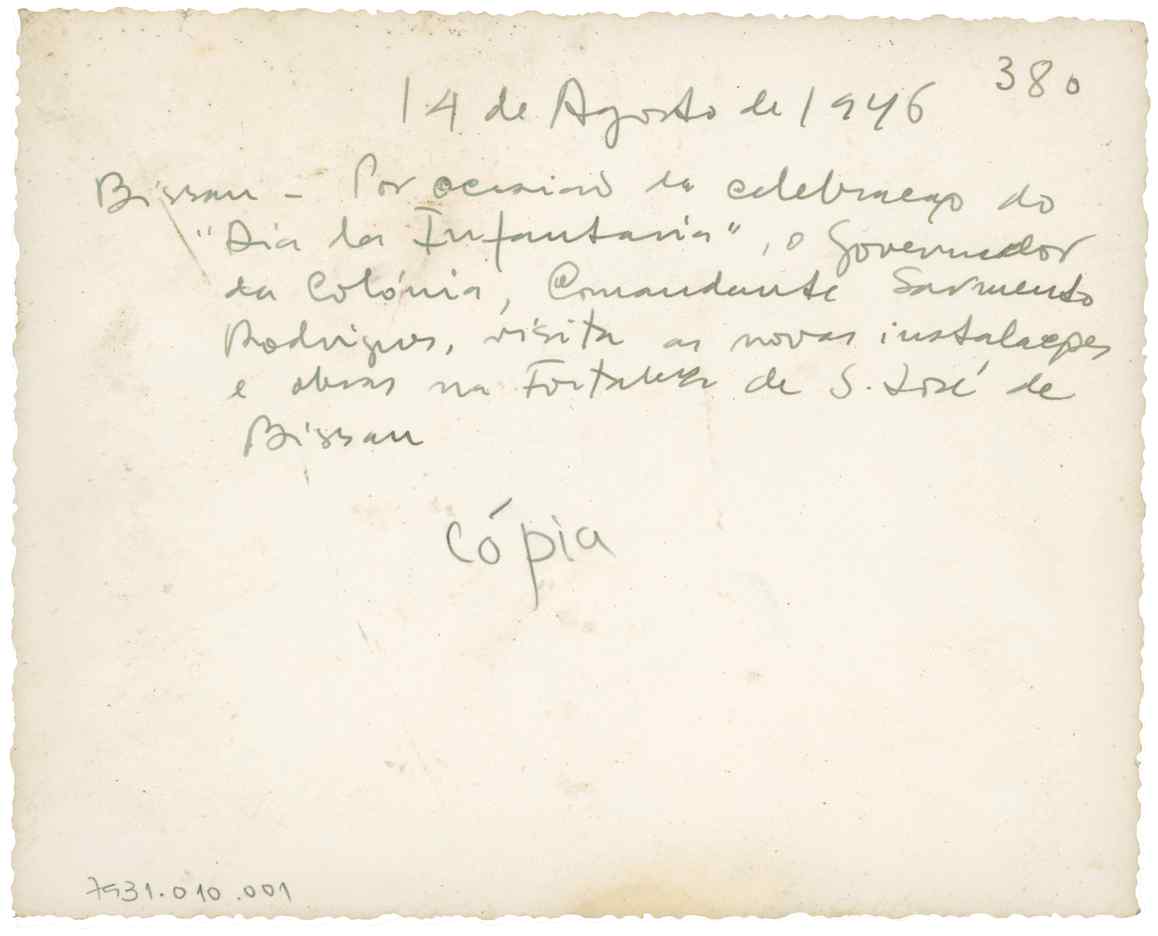 380
14 de Agosto de 1946
Bissau - Por ocasião da celebração do
"Dia da Infantaria", o Governador
da Colónia, Comandante Sarmento
Rodrigues, visita as novas instalações
e obras na Fortaleza de S. José de
Bissau
Cópia
7931.010.001